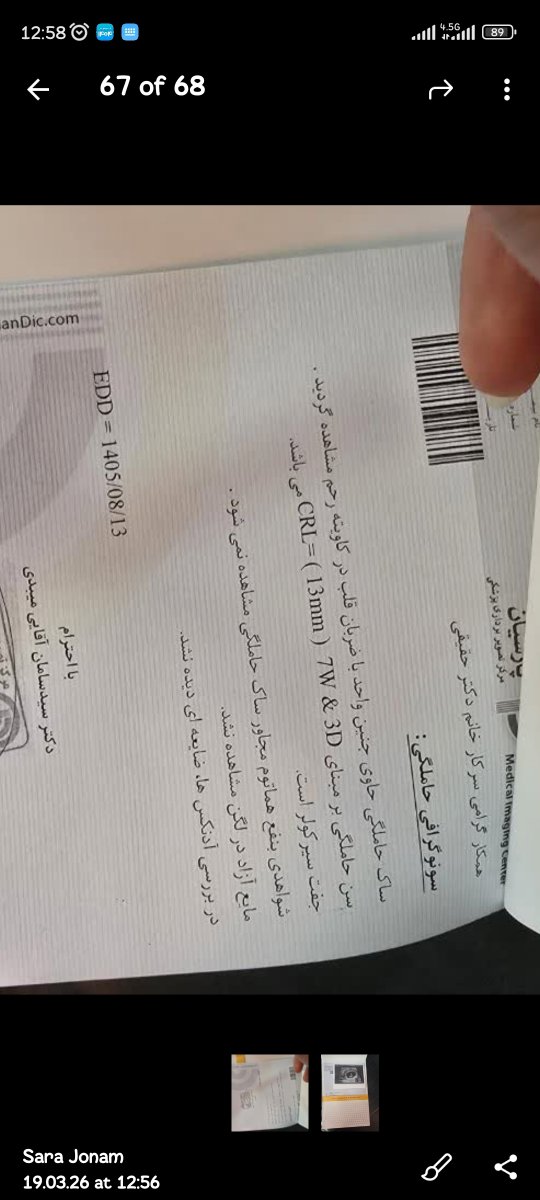 12:58
4.5G
89
67 of 68
پارسیان
مرکز تصویر برداری پزشکی
Medical Imaging Center
همکار گرامی سرکار خانم دکتر حقیقی
سونوگرافی حاملگی:
ساک حاملگی حاوی جنین واحد با ضربان قلب در کاویته رحم مشاهده گردید .
سن حاملگی بر مبنای CRL= ( 13mm ) 7W & 3D می باشد.
جفت سیرکولر است.
شواهدی بنفع هماتوم مجاور ساک حاملگی مشاهده نمی شود .
مایع آزاد در لگن مشاهده نشد.
در بررسی آدنکس ها، ضایعه ای دیده نشد.
EDD = 1405/08/13
با احترام
دکتر سیدسامان آقایی میبدی
anDic.com
Sara Jonam
19.03.26 at 12:56